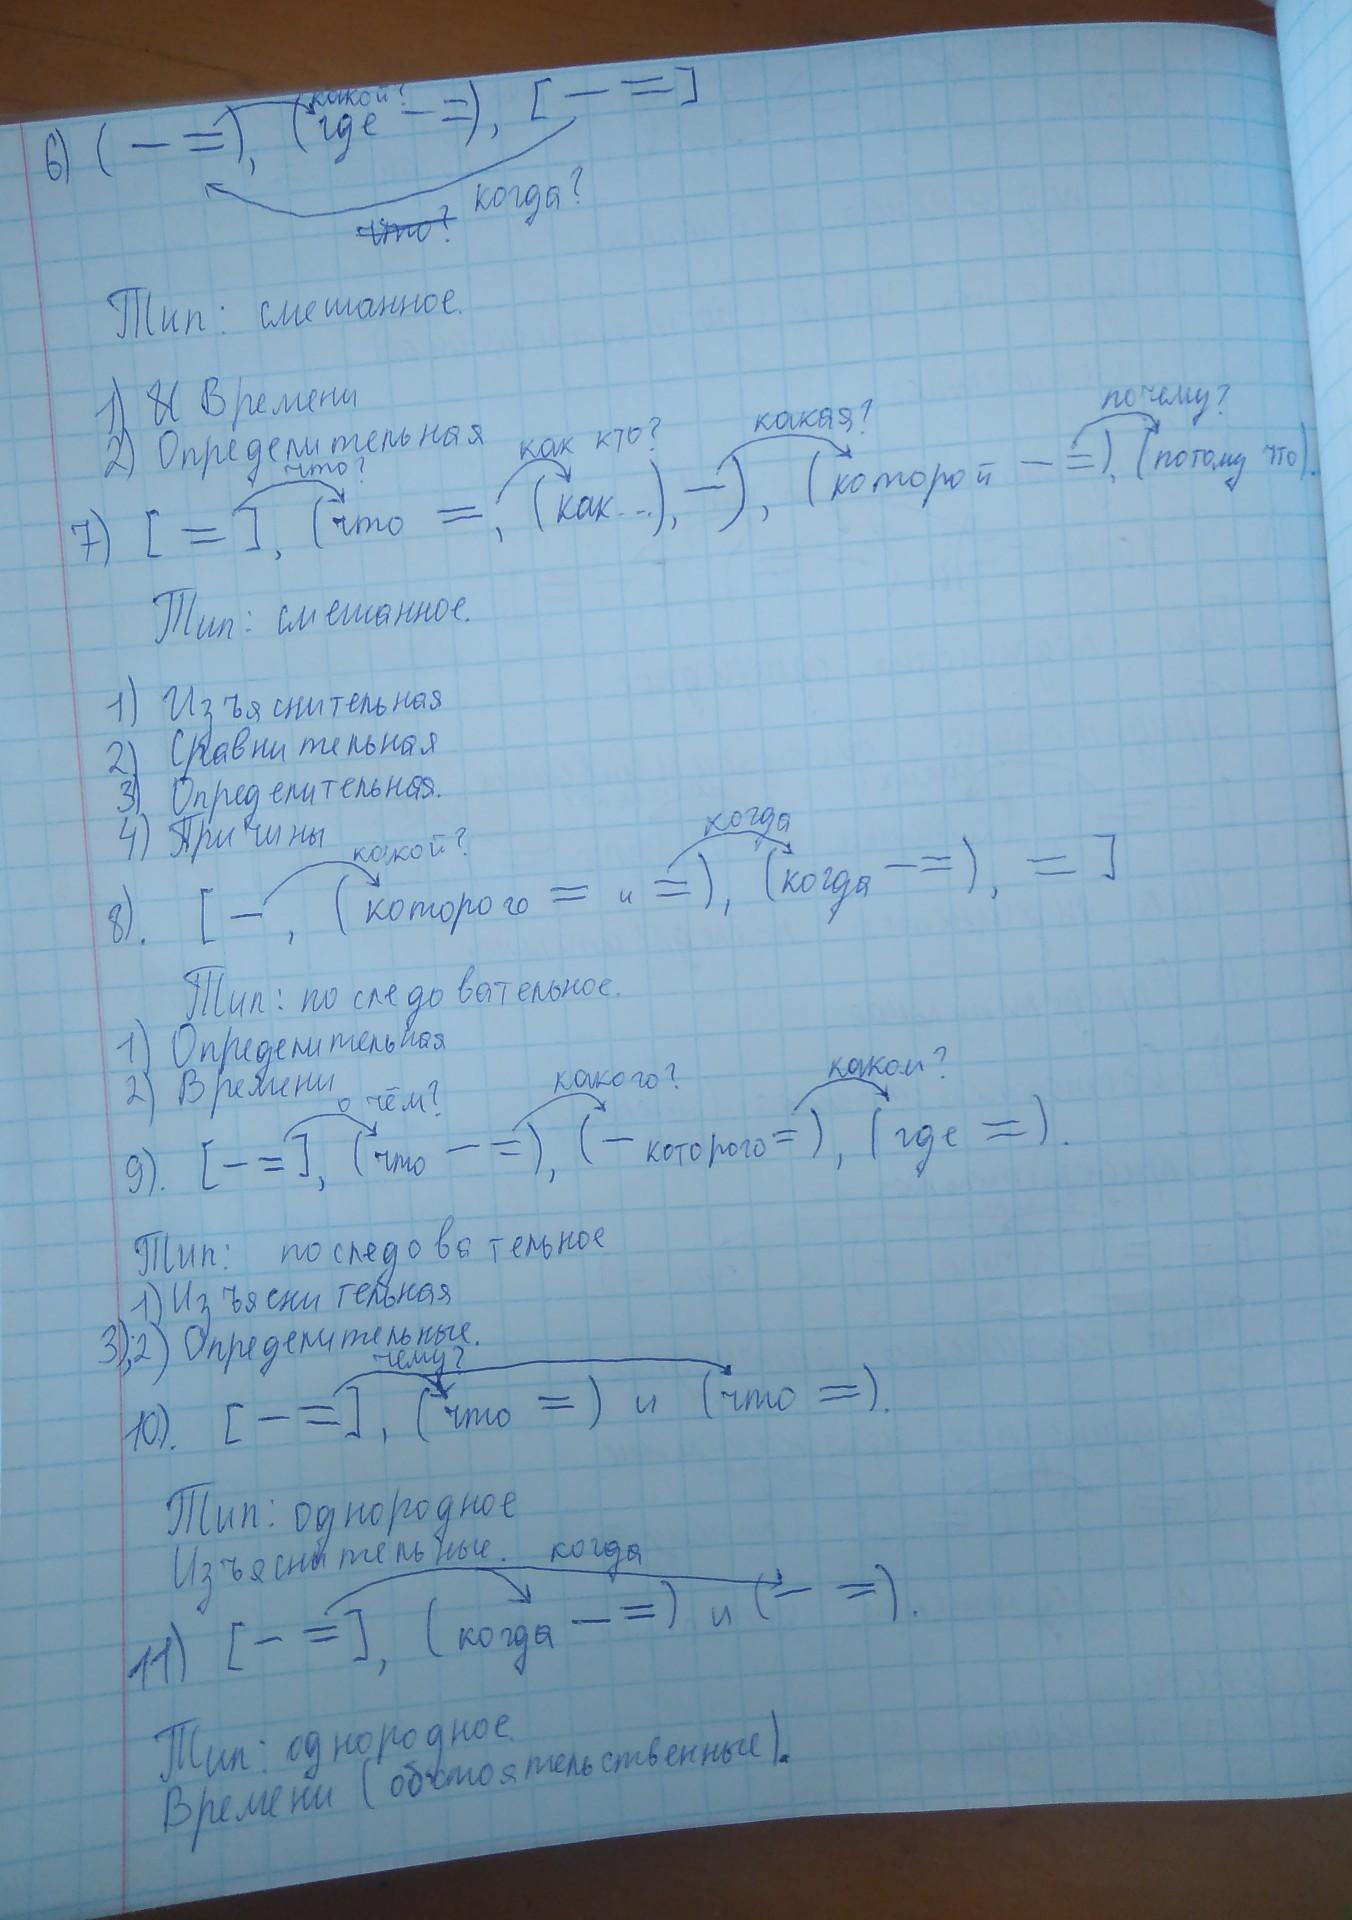 6) ( — = ), (где — =), [ — = ]
какой?
когда?
что?
Тип: смешанное.
1) Времени
2) Определительная
что? как кто? какая? почему?
7) [ = ], (что =, (как...), —), (которой — =), (потому что).
Тип: смешанное.
1) Изъяснительная
2) Сравнительная
3) Определительная.
4) Причины
какой? когда
8). [ —, (которого = и =), (когда — =), = ]
Тип: последовательное.
1) Определительная
2) Времени
о чём? какого? каком?
9). [ — = ], (что — =), ( — которого =), (где =).
Тип: последовательное
1) Изъяснительная
3), 2) Определительные.
чему?
10). [ — = ], (что =) и (что =).
Тип: однородное
Изъяснительные.
когда
11) [ — = ], (когда — =) и ( — =).
Тип: однородное.
Времени (обстоятельственные).